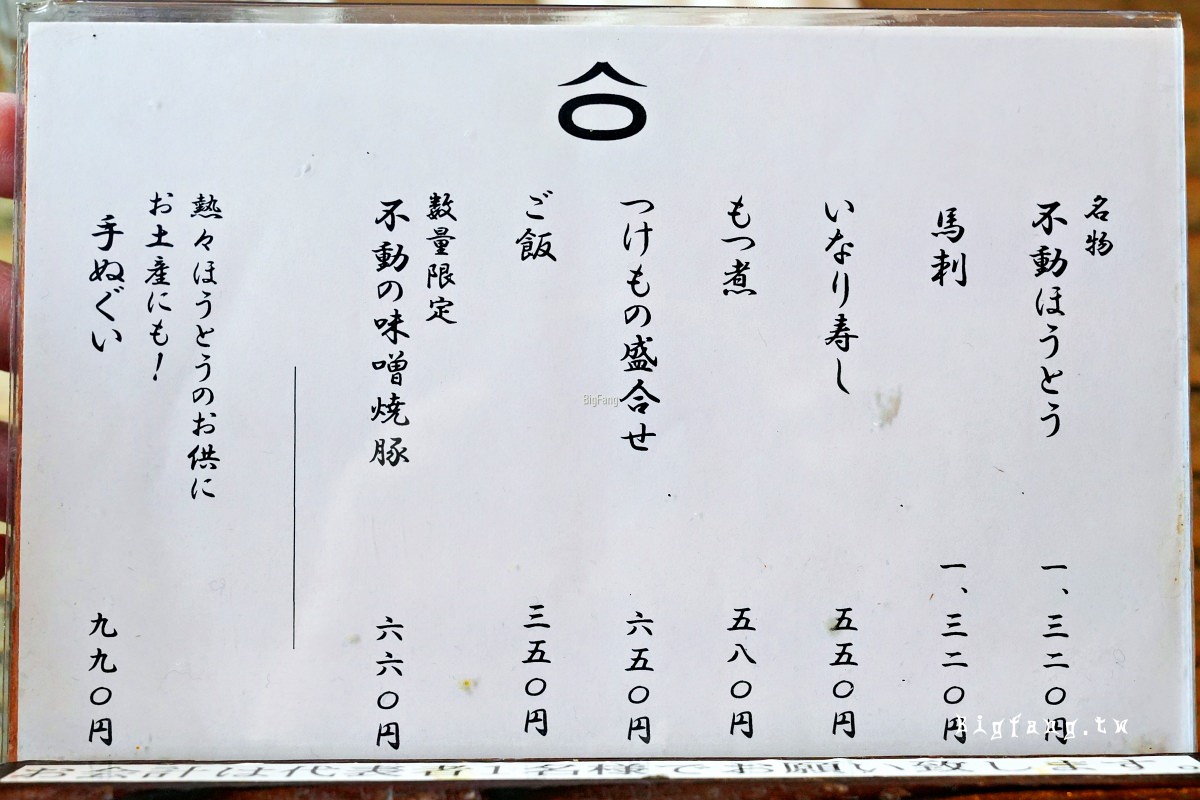 名物
不動ほうとう
一、三二〇円
馬刺
一、三二〇円
いなり寿し
五五〇円
もつ煮
五八〇円
つけもの盛合せ
六五〇円
ご飯
三五〇円
数量限定
不動の味噌焼豚
六六〇円
熱々ほうとうのお供に
お土産にも!
手ぬぐい
九九〇円
BigFang
Bigfang.tw